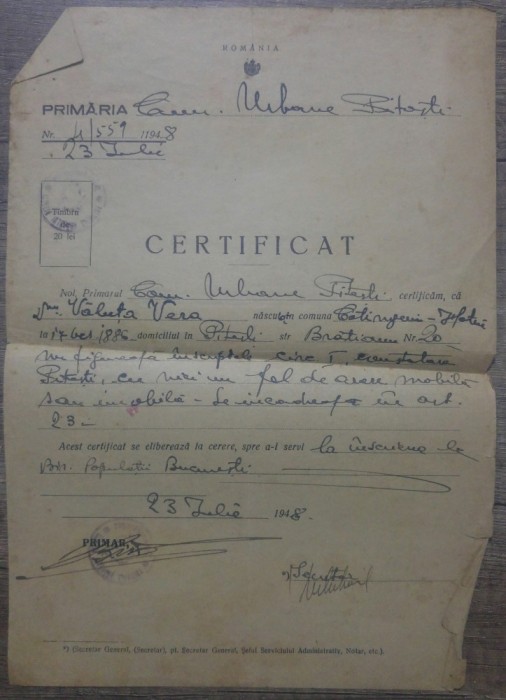 ROMÂNIA
PRIMĂRIA Com. Urbane Pitești
Nr. 4/559 /1948
23 Iulie
Timbru
20 lei
CERTIFICAT
Noi, Primarul Com. Urbane Pitești certificăm, că
Văluța Vera născut în comuna
la 17 Oct 1886 domiciliat în Pitești str Brătianu Nr. 20
nu figurează circ I,
Pitești, cu nici un fel de avere mobilă
sau imobilă - Se încadrează în art.
23.-
Acest certificat se eliberează la cerere, spre a-i servi la înscriere la
Bir. Populații București
23 Iulie 1948.
PRIMAR,
*) Secretar
*) (Secretar General, (Secretar), pt. Secretar General, Șeful Serviciului Administrativ, Notar, etc.).